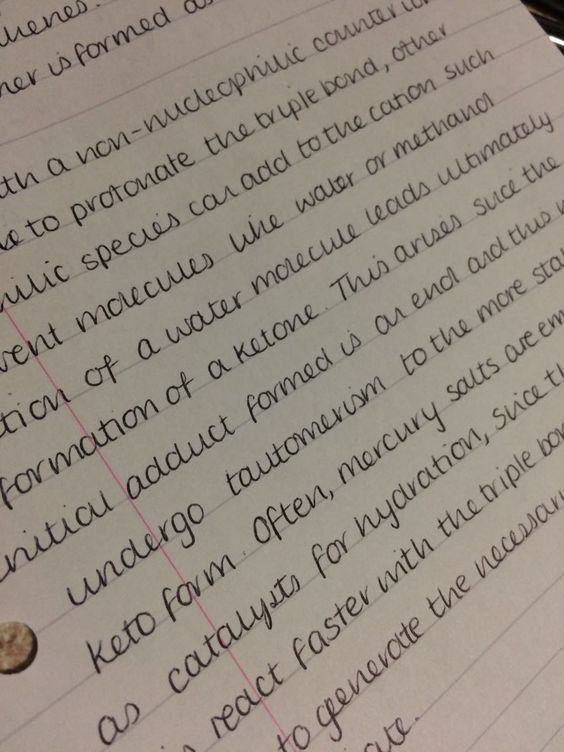 henes.
her is formed as
th a non-nucleophilic counter ion
to protonate the triple bond, other
ilic species can add to the cation such
vent molecules like water or methanol
tion of a water molecule leads ultimately
formation of a ketone. This arises since the
nitial adduct formed is an enol and this
undergo tautomerism to the more sta
keto form. Often, mercury salts are em
as catalysts for hydration, since th
react faster with the triple bon
to generate the necessary
ate.